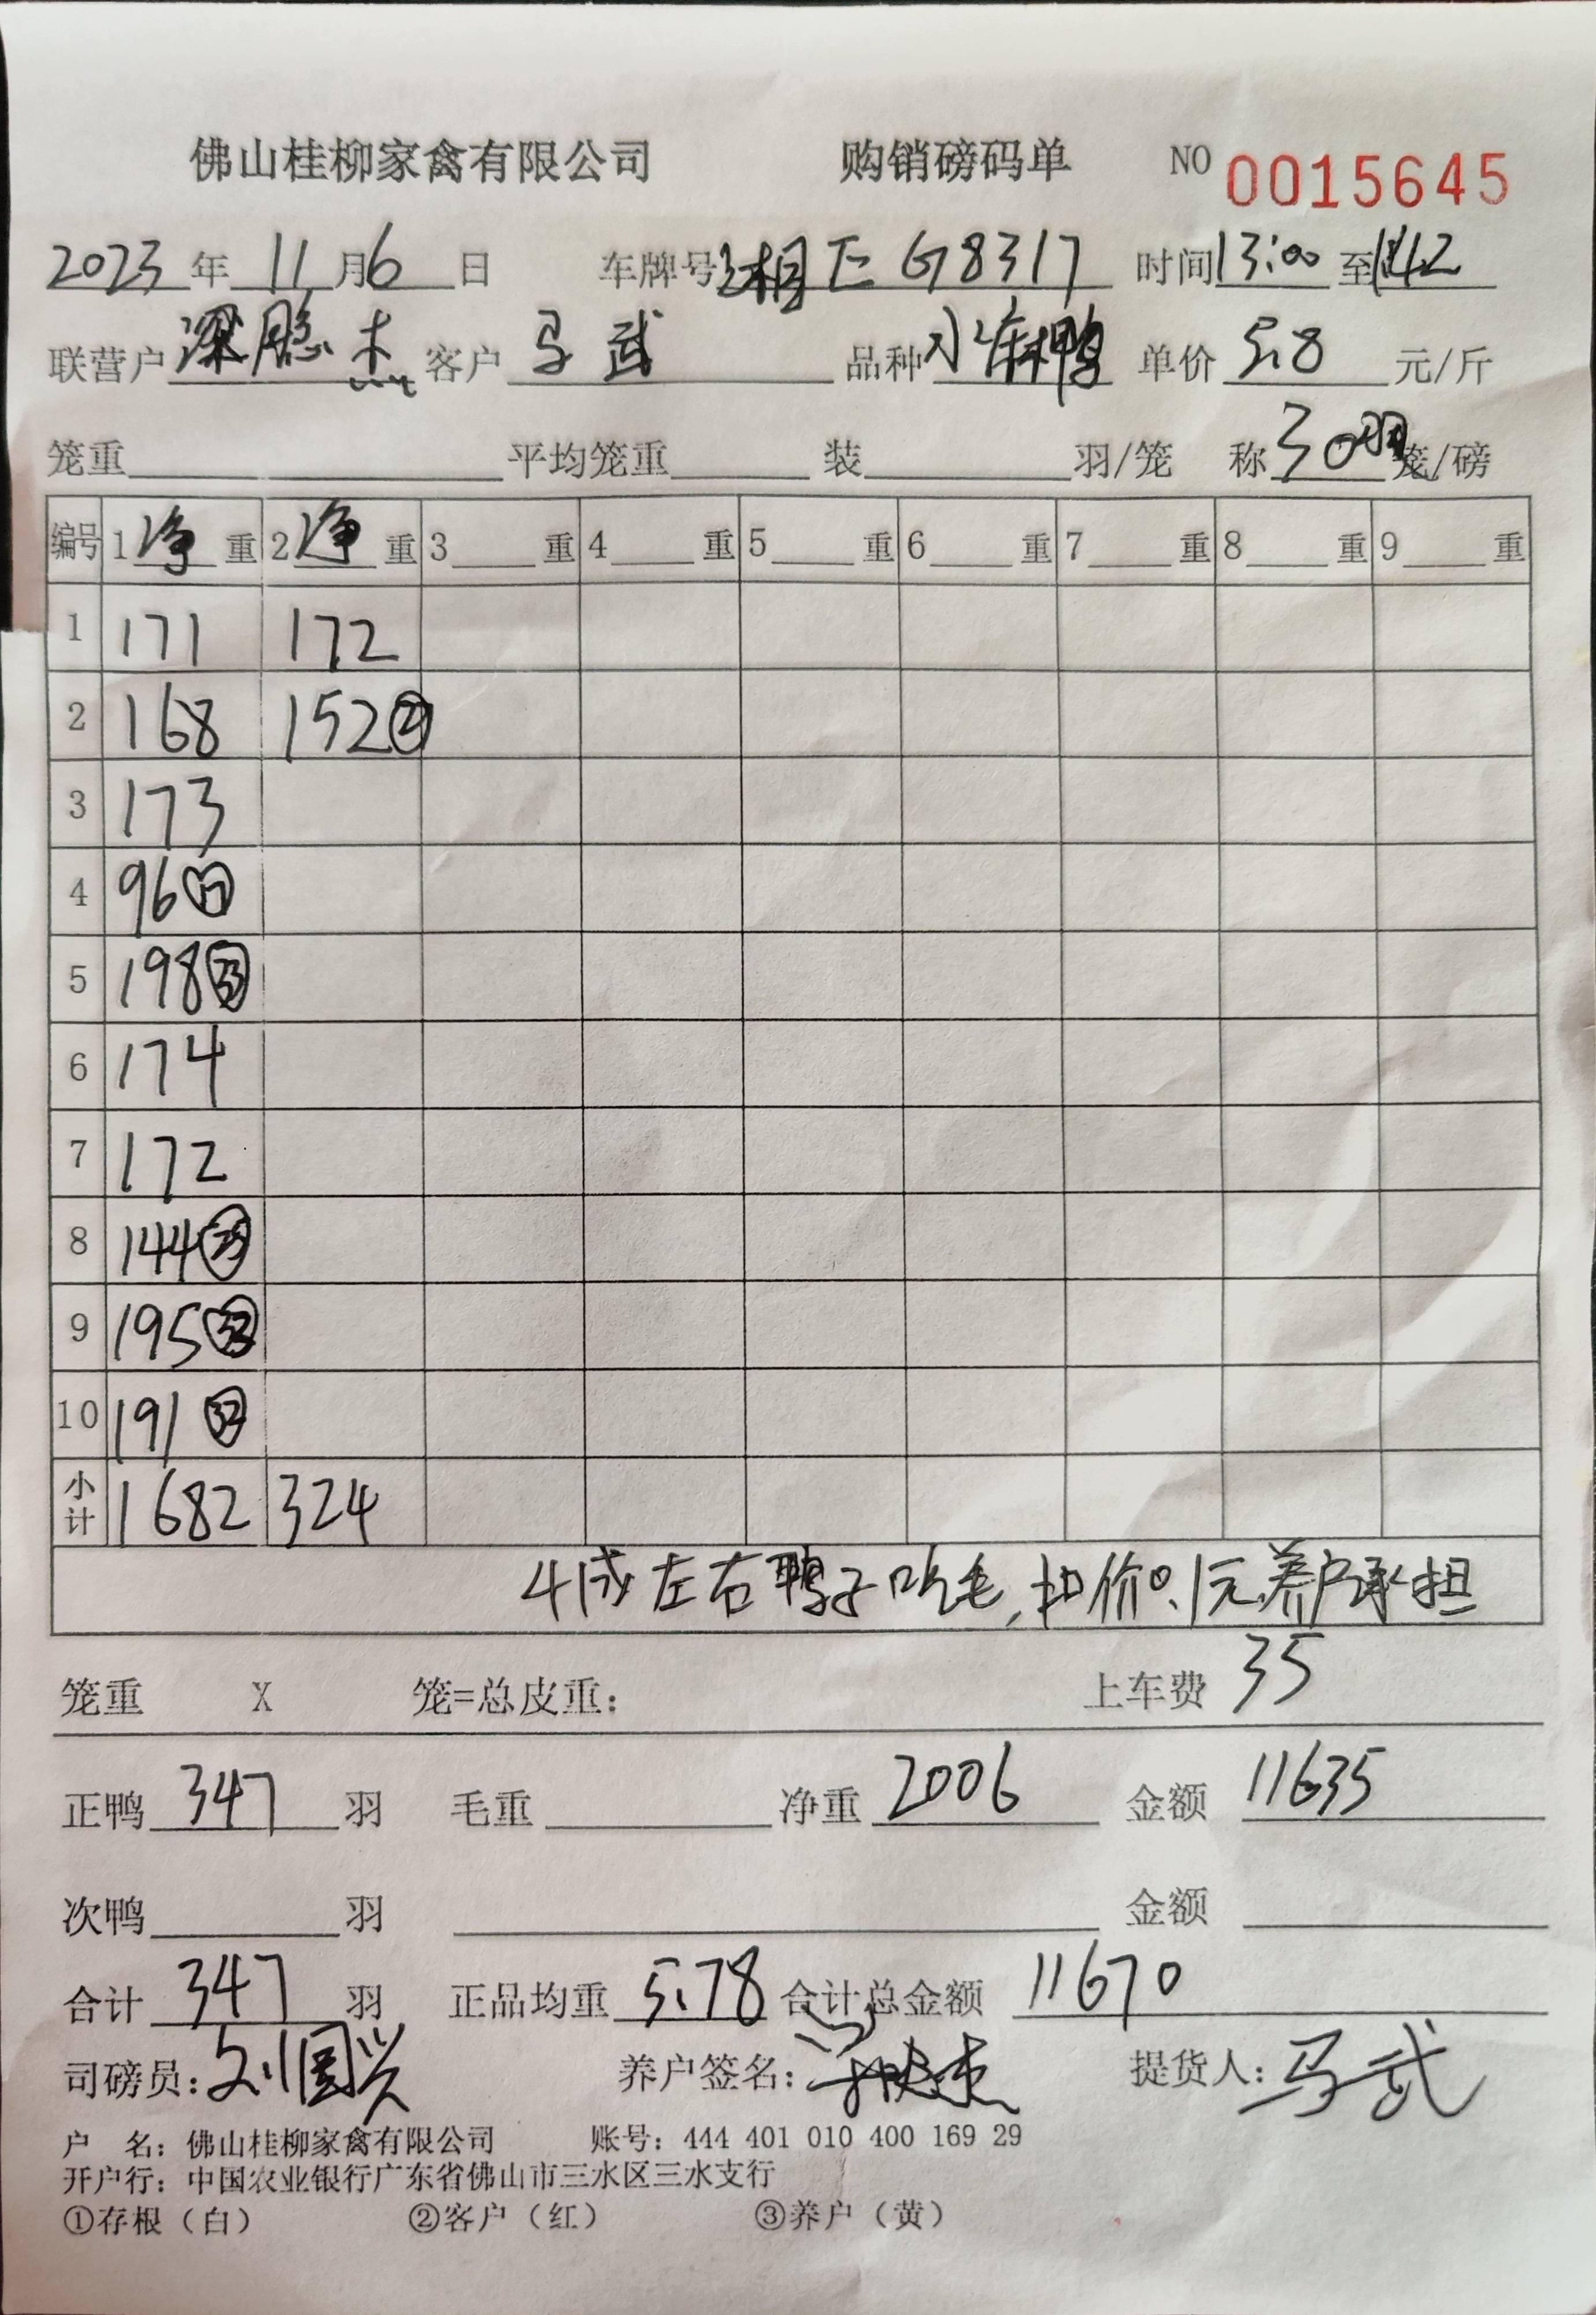 佛山桂柳家禽有限公司 购销磅码单 NO 0015645
2023年11月6日 车牌号 G8317 时间13:00至
联营户 客户马武 品种小麻鸭 单价5.8元/斤
笼重 平均笼重 装 羽/笼 称30羽笼/磅
编号 1净重 2净重 3 重 4 重 5 重 6 重 7 重 8 重 9 重
1 171 172
2 168 152
3 173
4 96⑰
5 198㉝
6 174
7 172
8 144㉕
9 195
10 191
小计 1682 324
4成左右鸭子吹毛,扣价0.1元养户承担
笼重 X 笼=总皮重: 上车费 35
正鸭347羽 毛重 净重2006 金额11635
次鸭 羽 金额
合计347羽 正品均重5.78 合计总金额11670
司磅员:刘国兴 养户签名: 提货人:马武
户 名:佛山桂柳家禽有限公司 账号:444 401 010 400 169 29
开户行:中国农业银行广东省佛山市三水区三水支行
①存根（白） ②客户（红） ③养户（黄）